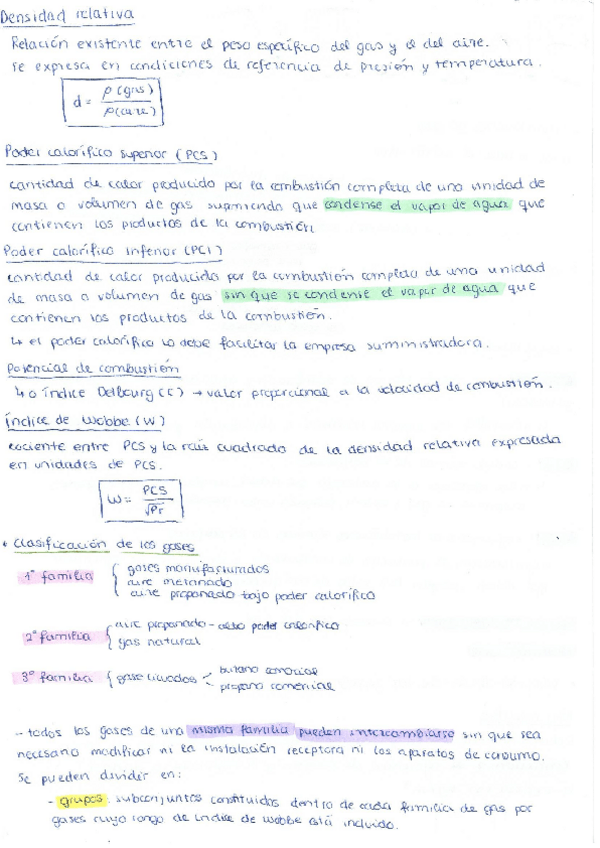 Densidad relativa
Relación existente entre el peso específico del gas y el del aire.
Se expresa en condiciones de referencia de presión y temperatura.
d = ρ(gas) / ρ(aire)
Poder calorífico superior (PCS)
cantidad de calor producido por la combustión completa de una unidad de
masa o volumen de gas suponiendo que condense el vapor de agua que
contienen los productos de la combustión
Poder calorífico inferior (PCI)
cantidad de calor producido por la combustión completa de una unidad
de masa o volumen de gas sin que se condense el vapor de agua que
contienen los productos de la combustión.
↳ el poder calorífico lo debe facilitar la empresa suministradora.
Potencial de combustión
↳ o índice Delbourg (C) → valor proporcional a la velocidad de combustión.
Índice de Wobbe (W)
cociente entre PCS y la raíz cuadrada de la densidad relativa expresada
en unidades de PCS.
W = PCS / √Pr
• Clasificación de los gases
1ª familia { gases manufacturados
aire metanado
aire propanado bajo poder calorífico
2ª familia { aire propanado - alto poder calorífico
gas natural
3ª familia { gase licuados < butano comercial
propano comercial
- todos los gases de una misma familia pueden intercambiarse sin que sea
necesario modificar ni la instalación receptora ni los aparatos de consumo.
Se pueden dividir en:
- grupos: subconjuntos constituidos dentro de cada familia de gas por
gases cuyo rango de índice de wobbe está incluido.